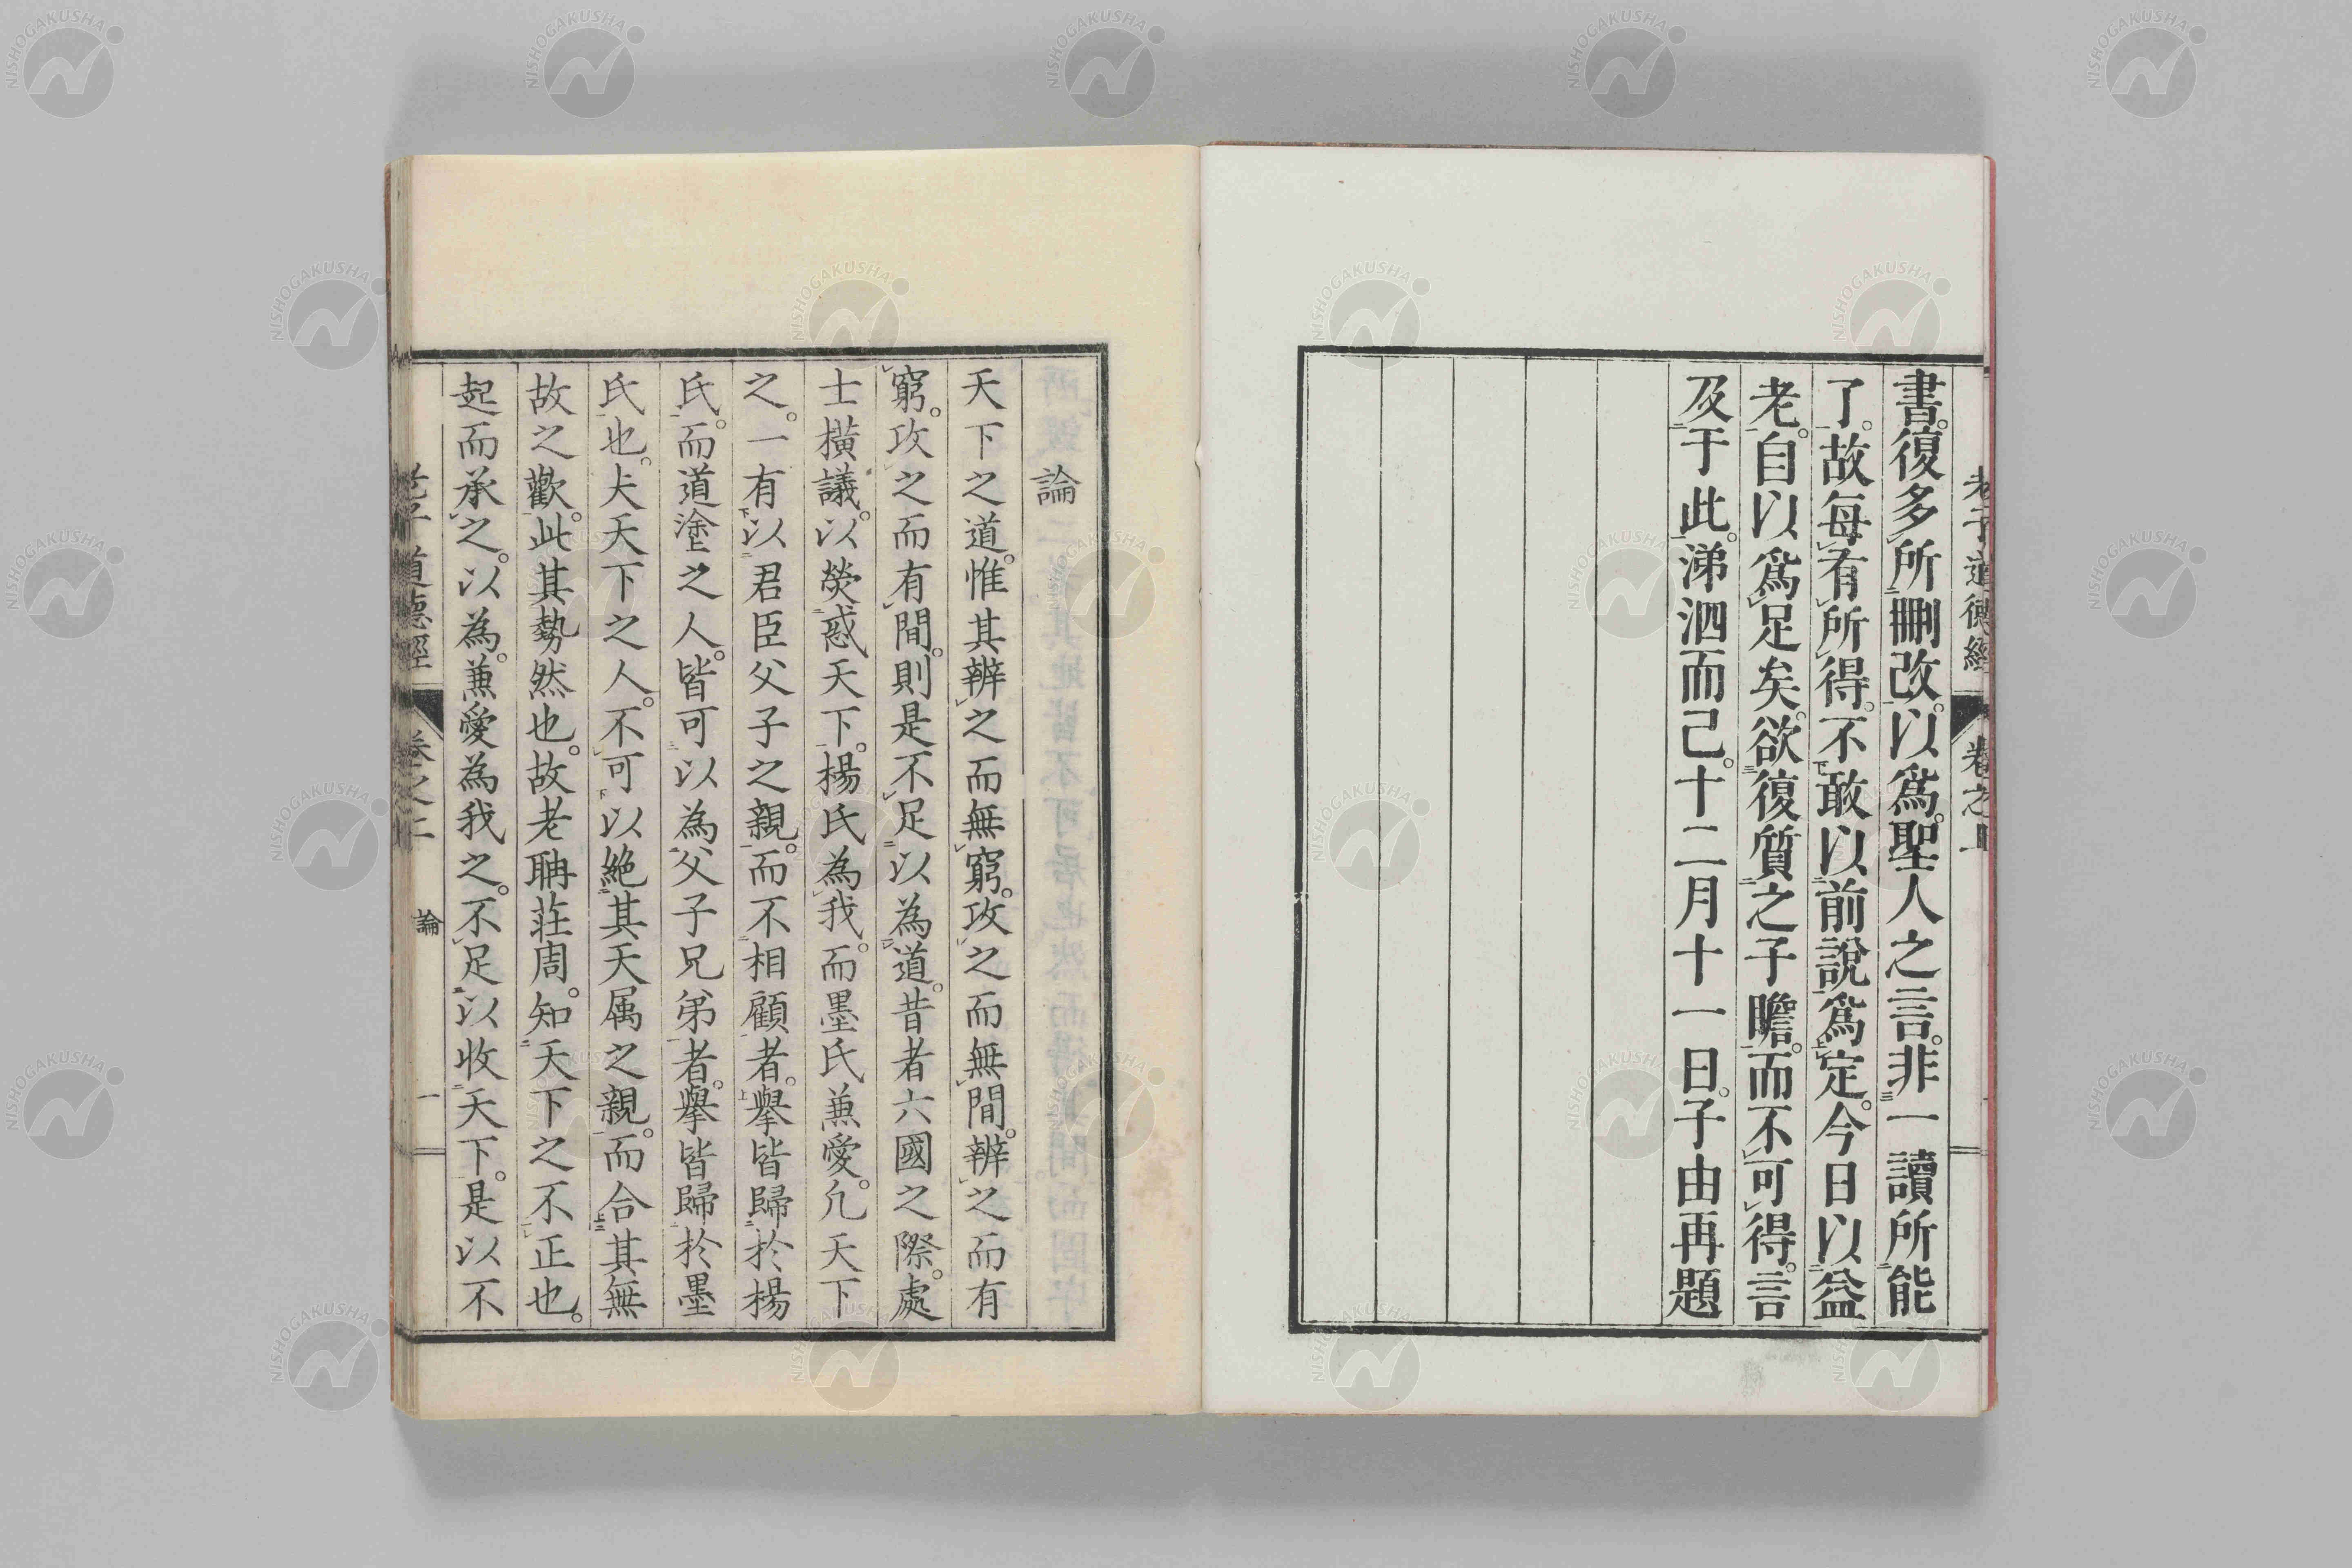 老子道德經 卷之上
書。復多所刪改。以爲。聖人之言。非一讀所能
了。故每有所得。不敢以前說爲定。今日以益
老。自以爲足矣。欲復質之子瞻。而不可得。言
及于此。涕泗而己。十二月十一日。子由再題
論
天下之道。惟其辨之而無窮。攻之而無間。辨之而有
窮。攻之而有間。則是不足以為道。昔者六國之際。處
士橫議。以熒惑天下。楊氏為我。而墨氏兼愛。凢天下
之。一有以君臣父子之親。而不相顧者。擧皆歸於楊
氏。而道塗之人。皆可以為父子兄弟者。擧皆歸於墨
氏也。夫天下之人。不可以絕其天属之親。而合其無
故之歡。此其勢然也。故老聃莊周。知天下之不正也。
起而承之。以為。兼愛為我之。不足以收天下。是以不
老子道德經 卷之二 論 一
NISHOGAKUSHA